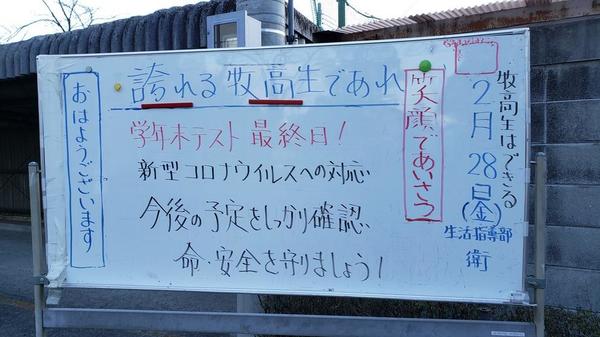 牧高生はできる
2月28日(金)
生活指導部
衛
笑顔であいさつ
誇れる牧高生であれ
学年末テスト最終日!
新型コロナウイルスへの対応
今後の予定をしっかり確認
命・安全を守りましょう!
おはようございます